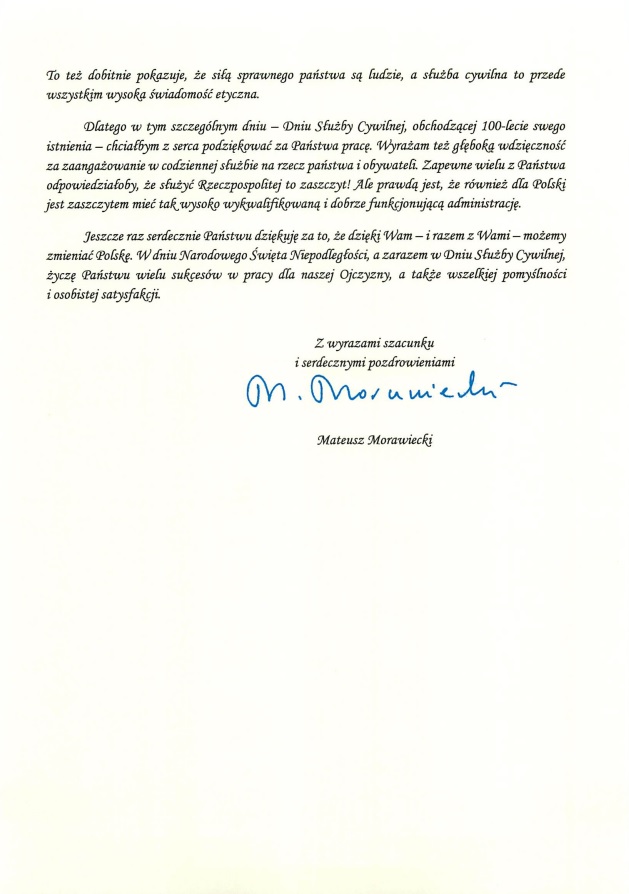 To też dobitnie pokazuje, że siłą sprawnego państwa są ludzie, a służba cywilna to przede
wszystkim wysoka świadomość etyczna.
Dlatego w tym szczególnym dniu – Dniu Służby Cywilnej, obchodzącej 100-lecie swego
istnienia – chciałbym z serca podziękować za Państwa pracę. Wyrażam też głęboką wdzięczność
za zaangażowanie w codziennej służbie na rzecz państwa i obywateli. Zapewne wielu z Państwa
odpowiedziałoby, że służyć Rzeczpospolitej to zaszczyt! Ale prawdą jest, że również dla Polski
jest zaszczytem mieć tak wysoko wykwalifikowaną i dobrze funkcjonującą administrację.
Jeszcze raz serdecznie Państwu dziękuję za to, że dzięki Wam – i razem z Wami – możemy
zmieniać Polskę. W dniu Narodowego Święta Niepodległości, a zarazem w Dniu Służby Cywilnej,
życzę Państwu wielu sukcesów w pracy dla naszej Ojczyzny, a także wszelkiej pomyślności
i osobistej satysfakcji.
Z wyrazami szacunku
i serdecznymi pozdrowieniami
M. Morawiecki
Mateusz Morawiecki